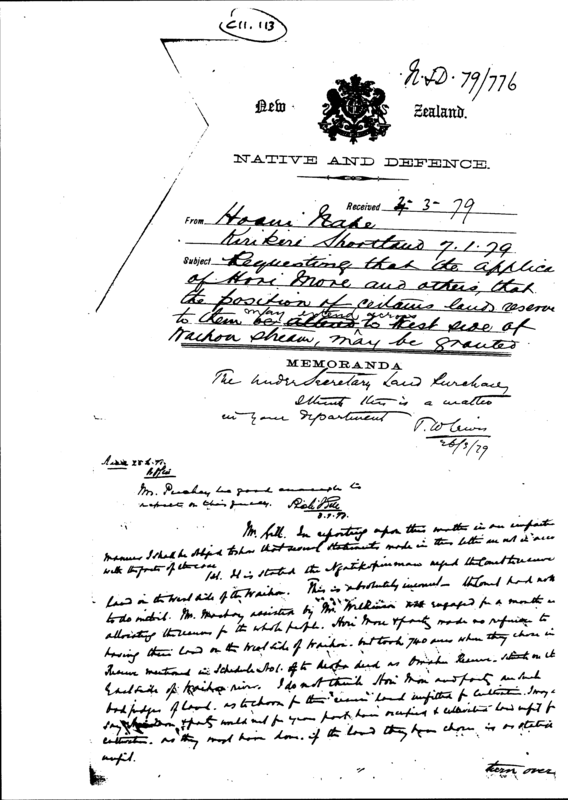 C11. 113
N&D. 79/776
New Zealand.
NATIVE AND DEFENCE.
Received 3- 79
From Hoani Nahe
Kirikiri Shortland 7.1.79
Subject Requesting that the applica
of Hori More and others, that
the position of certain land reserve
may extend across
to them be altered to West side of
Waihou stream, may be granted
MEMORANDA
The Under Secretary Land Purchase
I think this is a matter
in your department
T. W Lewis
26/3/79
Mr. Puckey be good enough to
report on this
Mr. Gill. In reporting upon this matter in an impartial
manner I shall be obliged to show that several statements made in this letter are not in acco
with the facts of the case
1st. It is stated the
land on the West side of the Waihou. This is absolutely incorrect the Court had not
to do with it. Mr. Mackay assisted by Mr. Wilkinson was engaged for a month in
allotting the reserves for the whole people. Hori More & party made no reference to
having their land on the West side of Waihou. but took 740 acres when they chose in
Reserve mentioned in Schedule No1. of the deed as Omahu Reserve. situate on the
East side of Waihou river. I do not think Hori More and party are such
bad judges of land. as to choose for their reserve land unfitted for cultivation. I may
say & party would not for years past have occupied & cultivated land unfit for
cultivation. as they must have done. if the land they have chosen is as stated
unfit.
turn over